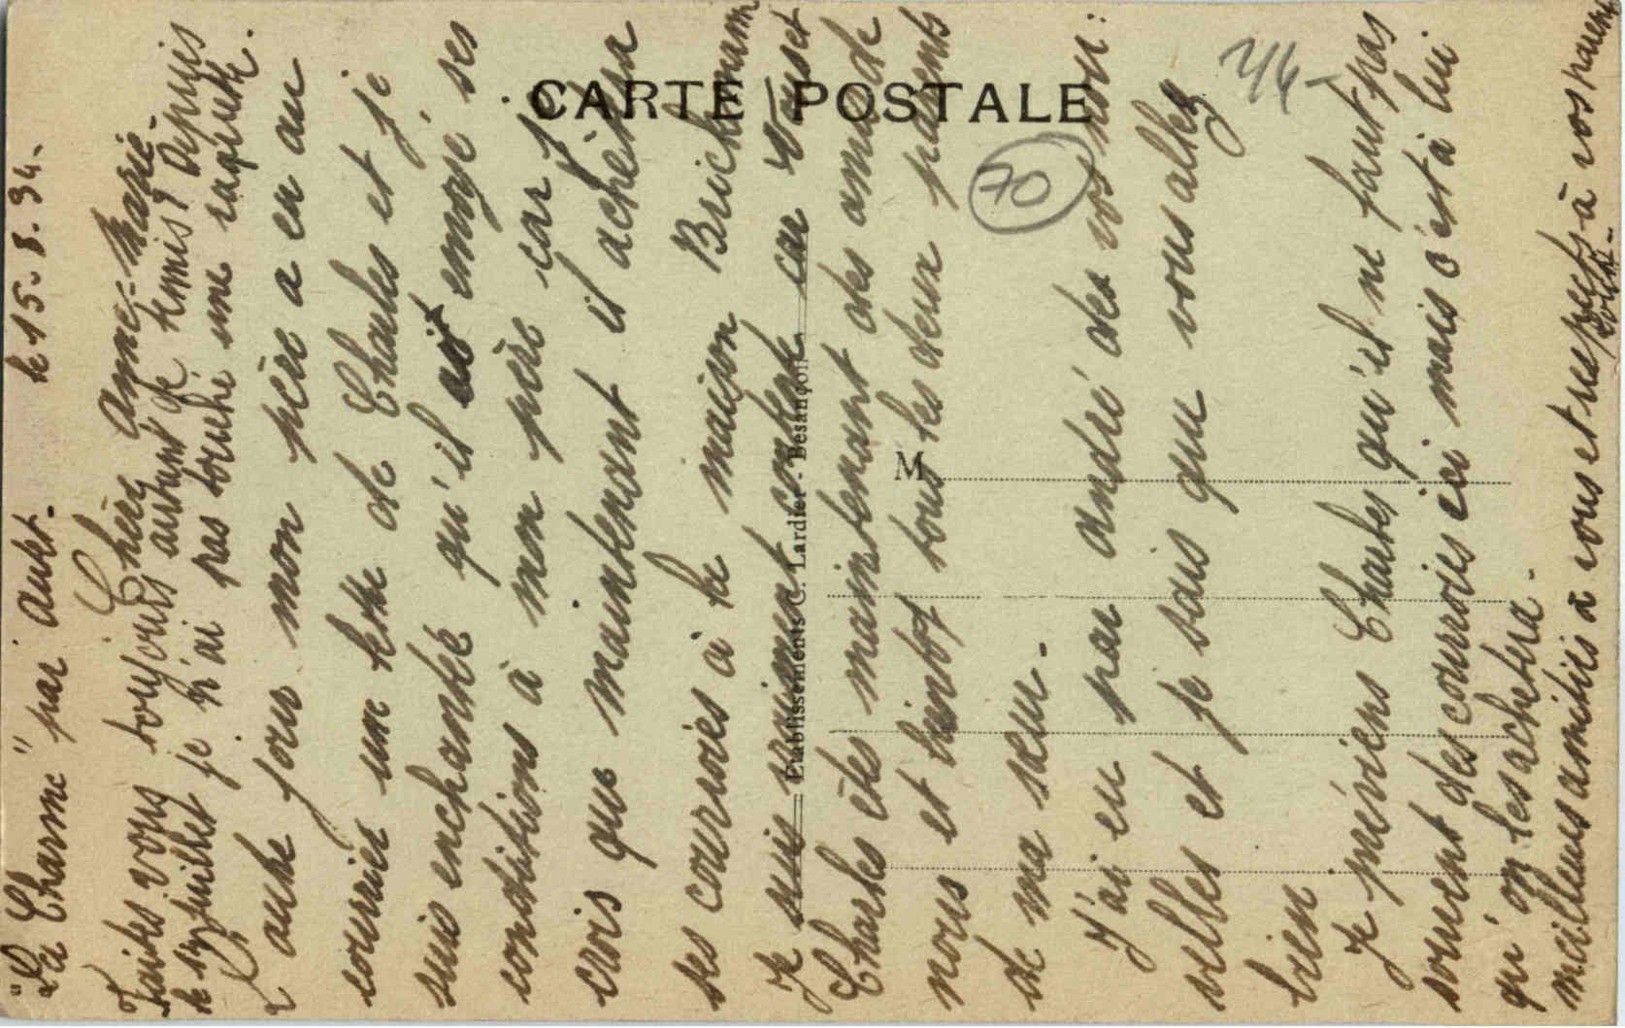 "La Charme" par Autet.
le 15.8.34.
Chère Anne-Marie-
Faites vous toujours autant de tennis? Depuis
le 27 juillet je n'ai pas touché une raquette.
L'autre jour mon père a eu au
courrier une lettre de Charles et je
suis enchantée qu'il ait envoyé ses
conditions à mon père car je
crois que maintenant il achètera
ses courroies à la maison
Je suis vraiment contente car vous et
Charles êtes maintenant des amis de
nous et bientôt tous les deux parents
de ma sœur.
J'ai eu par André des vos nou:
velles et je sais que vous allez
bien
Je préviens Charles qu'il ne faut pas
souvent des courroies ici mais c'est à lui
qu'on les achètera.
meilleures amitiés à vous et respects à vos parents
CARTE POSTALE
M
Etablissements C. Lardier - Besançon
70